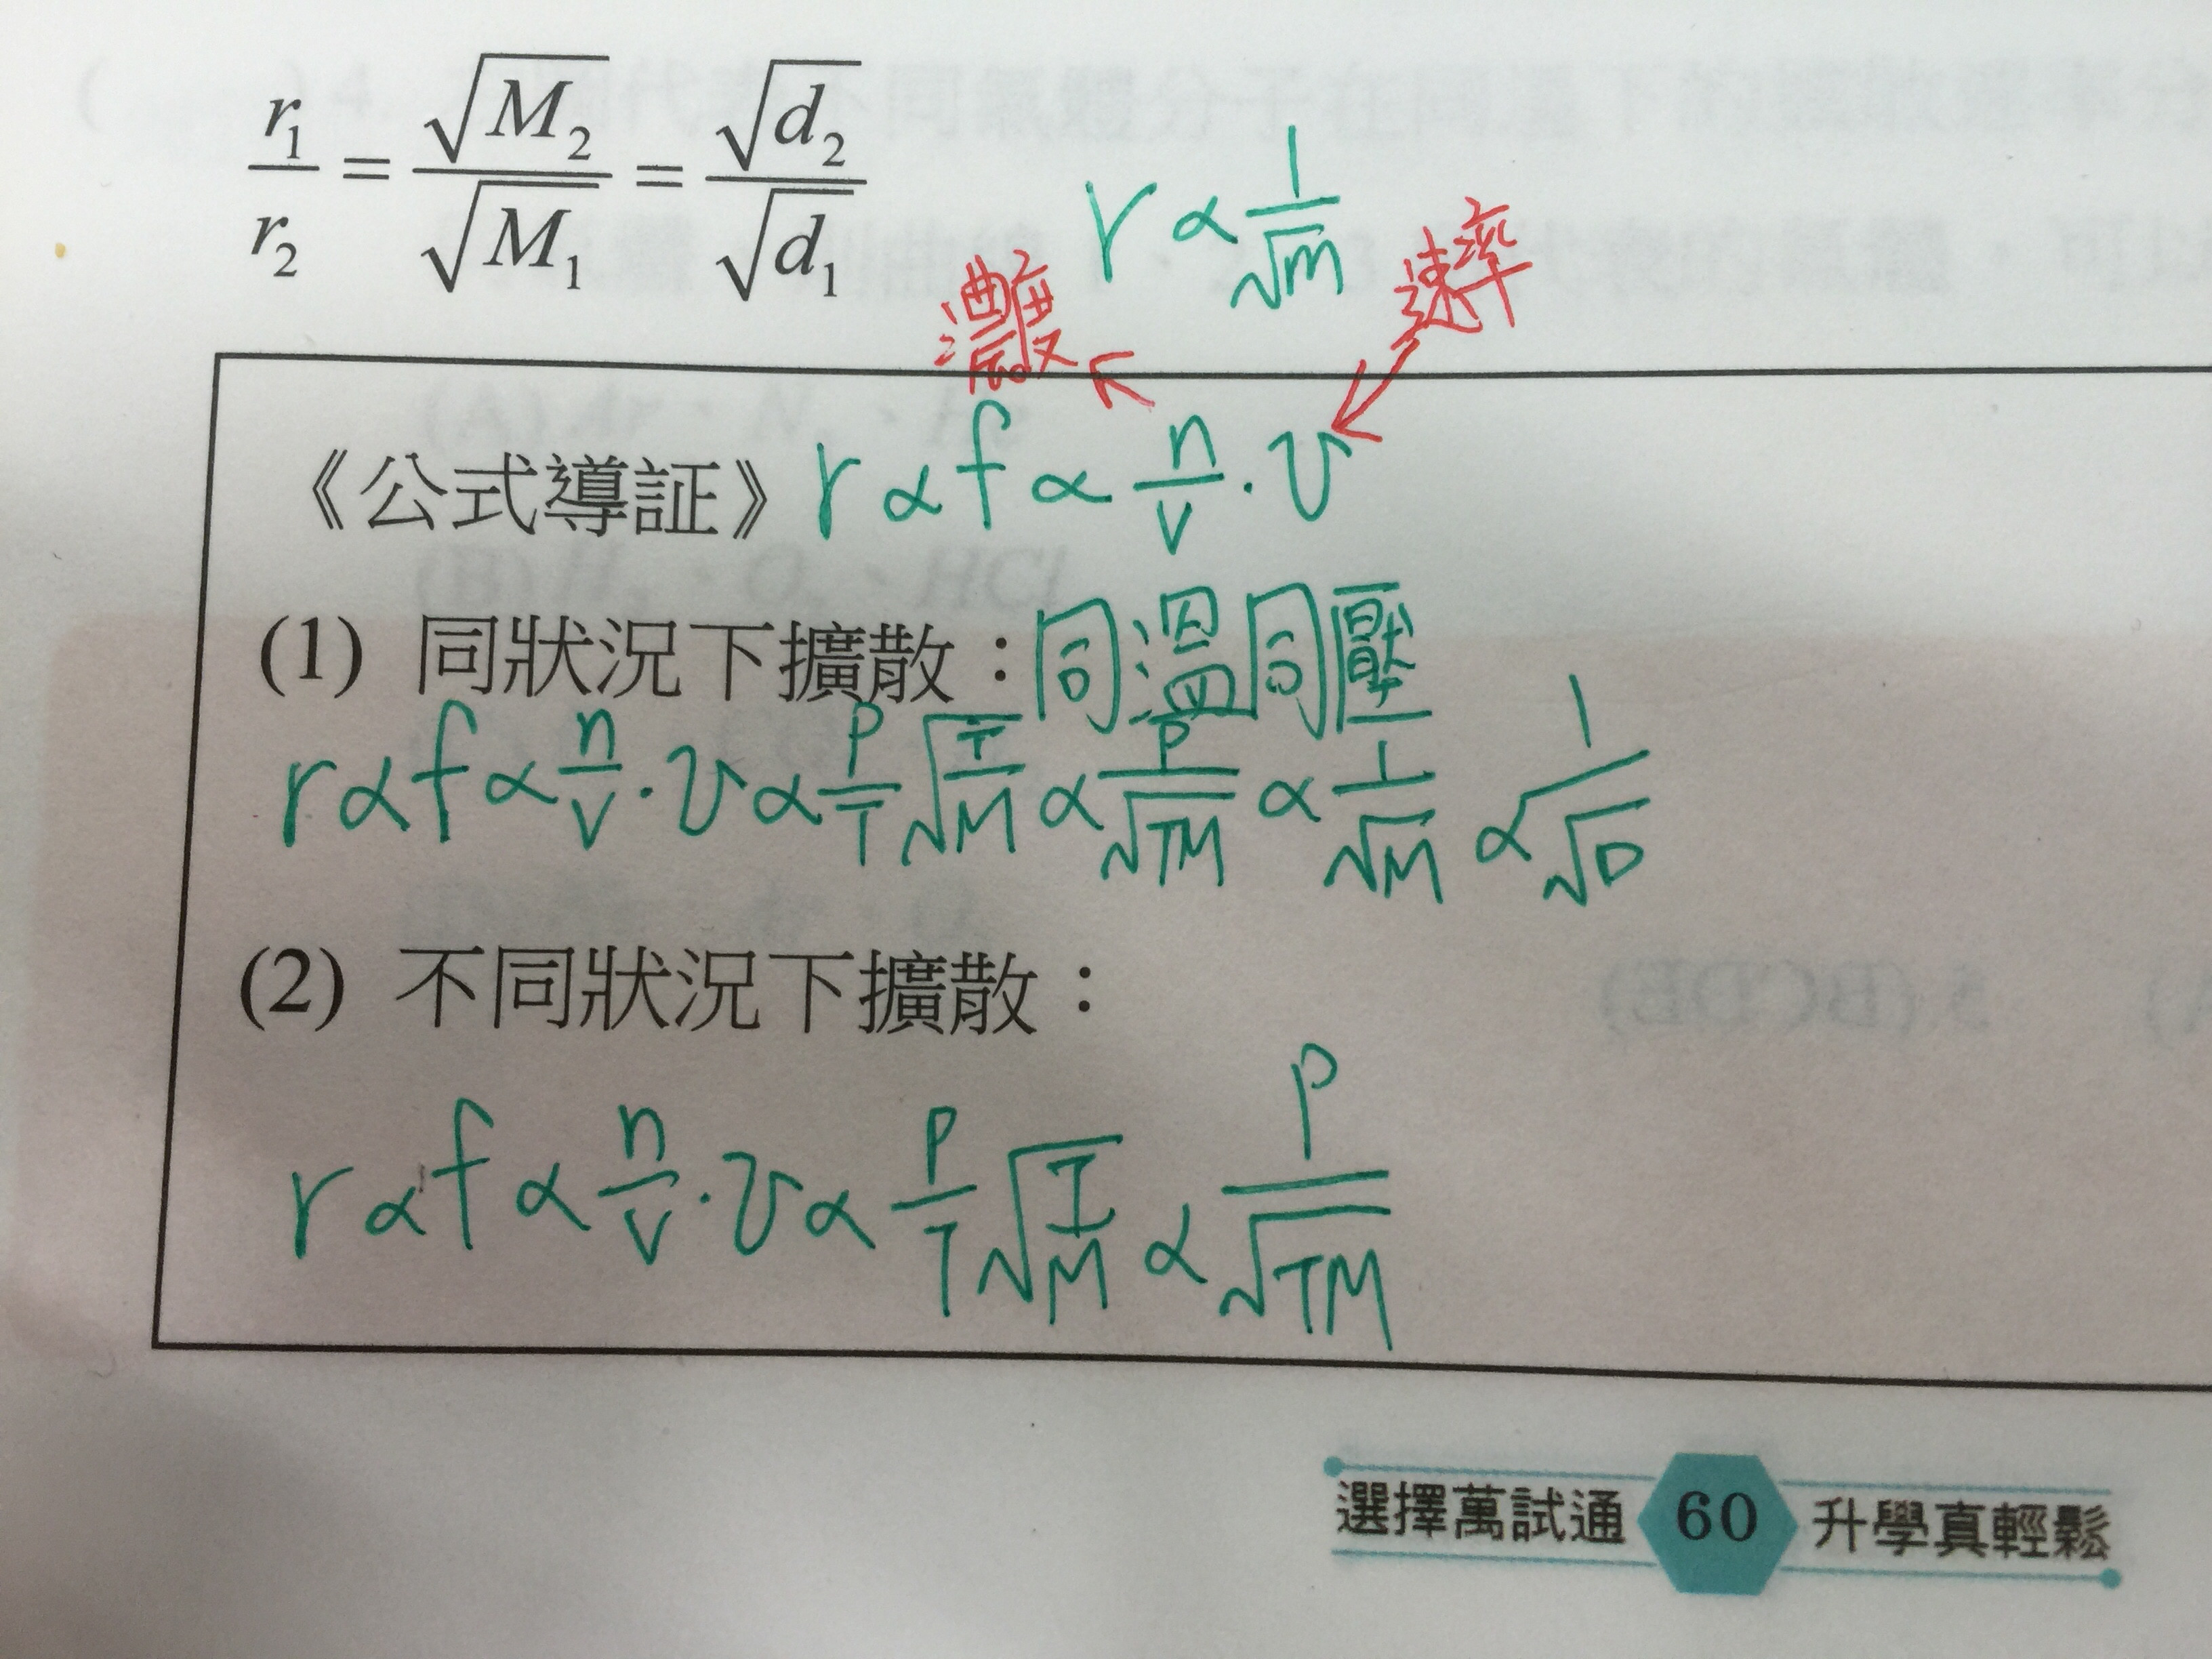 r₁/r₂ = √M₂/√M₁ = √d₂/√d₁
r ∝ 1/√m
濃度
速率
《公式導証》 r ∝ f ∝ n/V · v
(1) 同狀況下擴散：同溫同壓
r ∝ f ∝ n/V · v ∝ P/T √(T/M) ∝ P/√(TM) ∝ 1/√M ∝ 1/√D
(2) 不同狀況下擴散：
r ∝ f ∝ n/V · v ∝ P/T √(T/M) ∝ P/√(TM)
選擇萬試通 60 升學真輕鬆